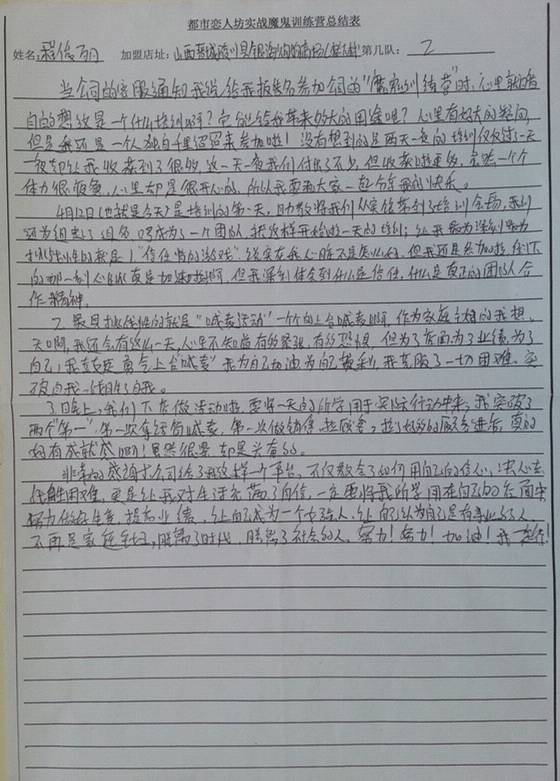 都市恋人坊实战魔鬼训练营总结表
姓名: 程俊丽 加盟店址: 山西晋城陵川县 第几队: 2
当公司的客服通知我说给我报名参加公司的"魔鬼训练营"时,心里就暗
自的想这是个什么培训啊?它能给我带来好大的用途呢?心里有好大的疑问,
但是我还是一个人独自千里迢迢来参加啦!没有想到的是两天一夜的培训仅仅过一天
一夜却让我收获到了很多,这一天一夜我们付出了不少,但收获啦更多,虽然一个个
体力很疲惫,心里却是很开心的,所以我要与大家一起分享我的快乐。
4月12日(也就是今天)是培训的第一天,助教将我们从宾馆带到了培训会场,我们
就这样开始的一天的培训;让我最为深刻
"信任背摔游戏"说实在我心里不是怎么样,但我还是参加啦,倒下
的那一刻心跳真是加速啦啊,但我深刻体会到什么是信任,什么是真正的团队合
作精神。
2、最具挑战性的就是"喊麦活动"一个个向上台喊麦啊,作为家庭主妇的我想,
天啊,我还会有这么一天,心里不知道有多紧张,有多恐惧,但为了店面为了业绩,为了
自己,我还是勇气上台"喊麦"我为自己加油为自己喝彩,我克服了一切困难、突
破自我、战胜自我。
3、晚上,我们下店做活动啦,要将一天的所学用于实际行动中来,我突破了
两个"第一",第一次拿话筒喊麦,第一次做销售,拉顾客,拉了好多的顾客进店,真的
好有成就感啊!虽然很累,却是兴奋的。
非常的感谢公司给了我这样一个平台,不仅教会了如何用自己的信心,决心去
化解困难,更是让我对生活充满了自信,一定要将我所学用在自己的店面中
努力做好生意,提高业绩,让自己成为一个女强人,让自己认为自己是有事业的人
不再是家庭主妇,脱离了时代,脱离了社会的人。努力!努力!加油!我一定行!